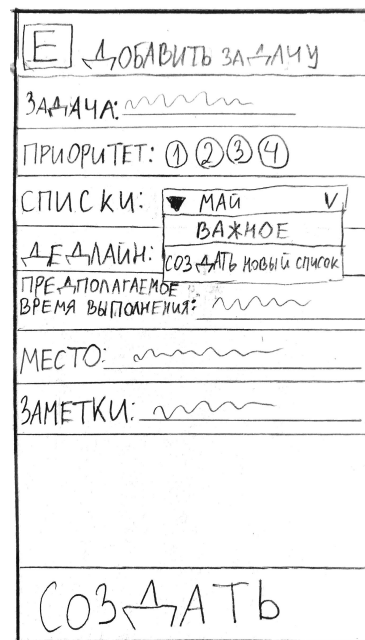 E ДОБАВИТЬ ЗАДАЧУ
ЗАДАЧА:
ПРИОРИТЕТ: 1 2 3 4
СПИСКИ: ▼ МАЙ V
ВАЖНОЕ
ДЕДЛАЙН: СОЗДАТЬ НОВЫЙ СПИСОК
ПРЕДПОЛАГАЕМОЕ
ВРЕМЯ ВЫПОЛНЕНИЯ:
МЕСТО:
ЗАМЕТКИ:
СОЗДАТЬ